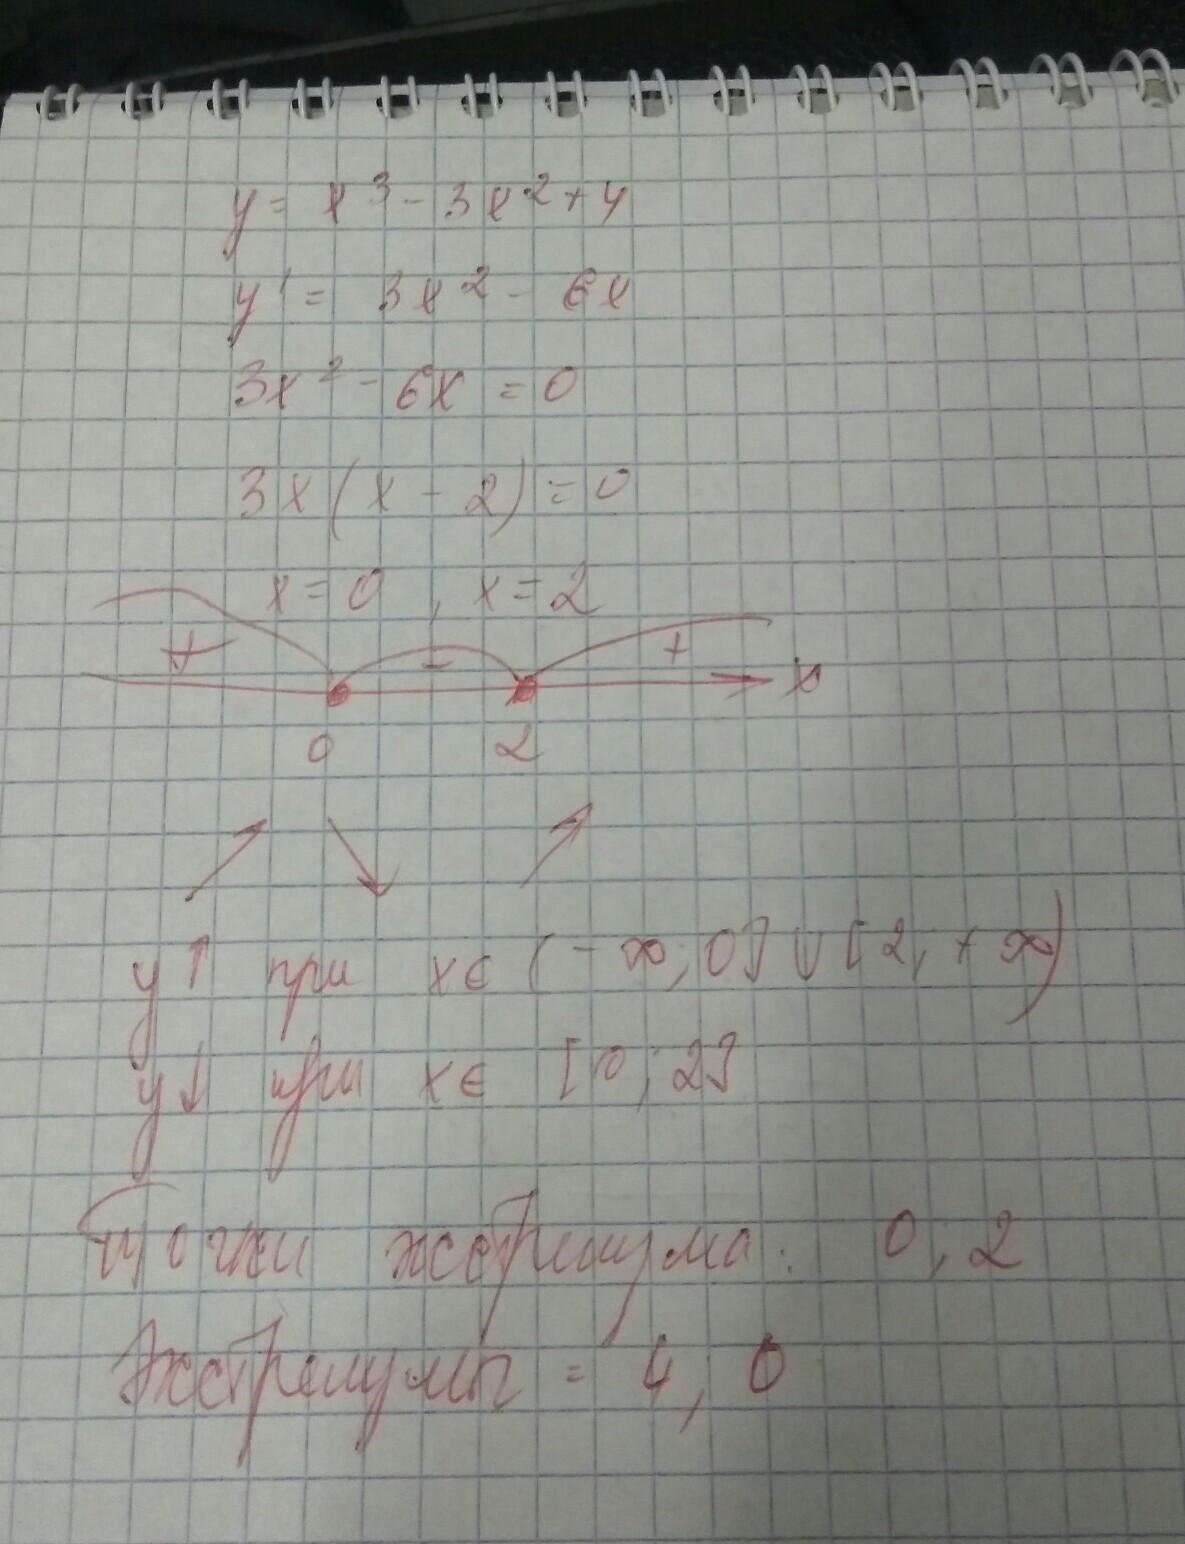 y = x³ - 3x² + 4
y' = 3x² - 6x
3x² - 6x = 0
3x(x - 2) = 0
x = 0 , x = 2
+ - + x
0 2
y↑ при x∈ (-∞; 0] ∪ [2; +∞)
y↓ при x∈ [0; 2]
Точки экстремума: 0; 2
Экстремумы = 4, 0